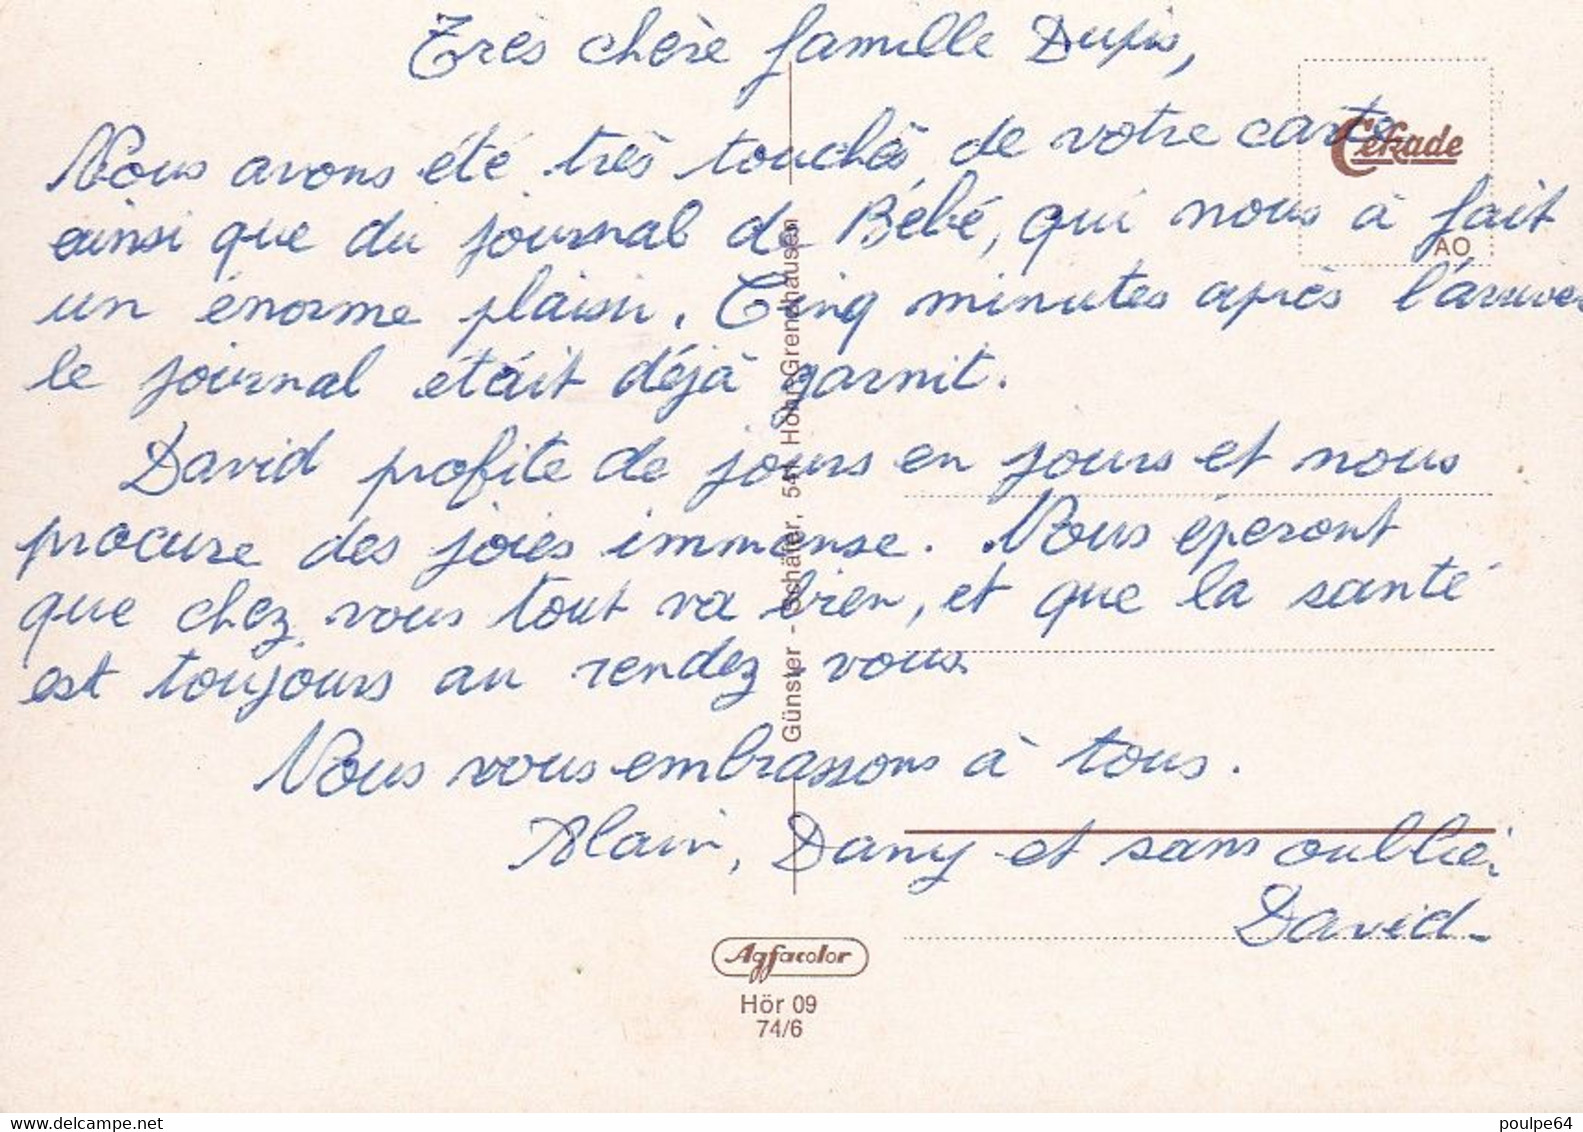 Très chère famille Dupis,
Nous avons été très touchés de votre carte,
ainsi que du journal de Bébé, qui nous à fait
un énorme plaisir. Cinq minutes après l'arrivée
le journal était déjà garnit.
David profite de jours en jours et nous
procure des joies immense. Nous éperont
que chez vous tout va bien, et que la santé
est toujours au rendez vous.
Nous vous embrassons à tous.
Alain, Dany et sans oublier
David.
Cekade
AO
Günster - Schäfer, 541 Höhr-Grenzhausen
Agfacolor
Hör 09
74/6
poulpe64